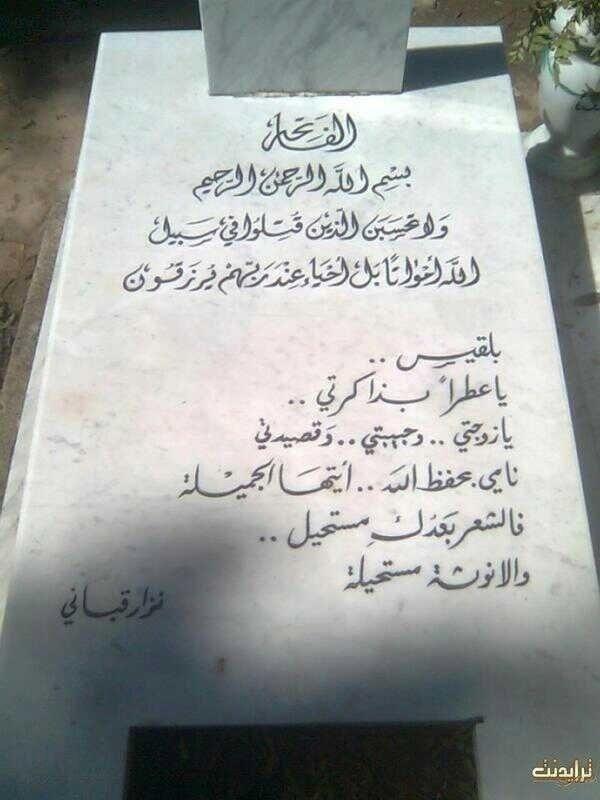 الفاتحة
بسم الله الرحمن الرحيم
ولا تحسبن الذين قتلوا في سبيل
الله أمواتا بل أحياء عند ربهم يرزقون
بلقيس ..
يا عطراً بذاكرتي ..
يا زوجتي .. وحبيبتي .. وقصيدتي
نامي بحفظ الله .. أيتها الجميلة
فالشعر بعدك مستحيل ..
والانوثة مستحيلة
نزار قباني
ترايدنت